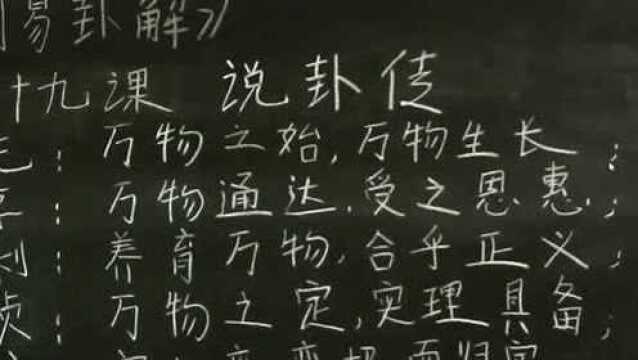 易卦解》
十九课 说卦传
元：万物之始，万物生长；
亨：万物通达．受之恩惠．；
利：养育万物，合乎正义；
贞：万物之定，实理具备；